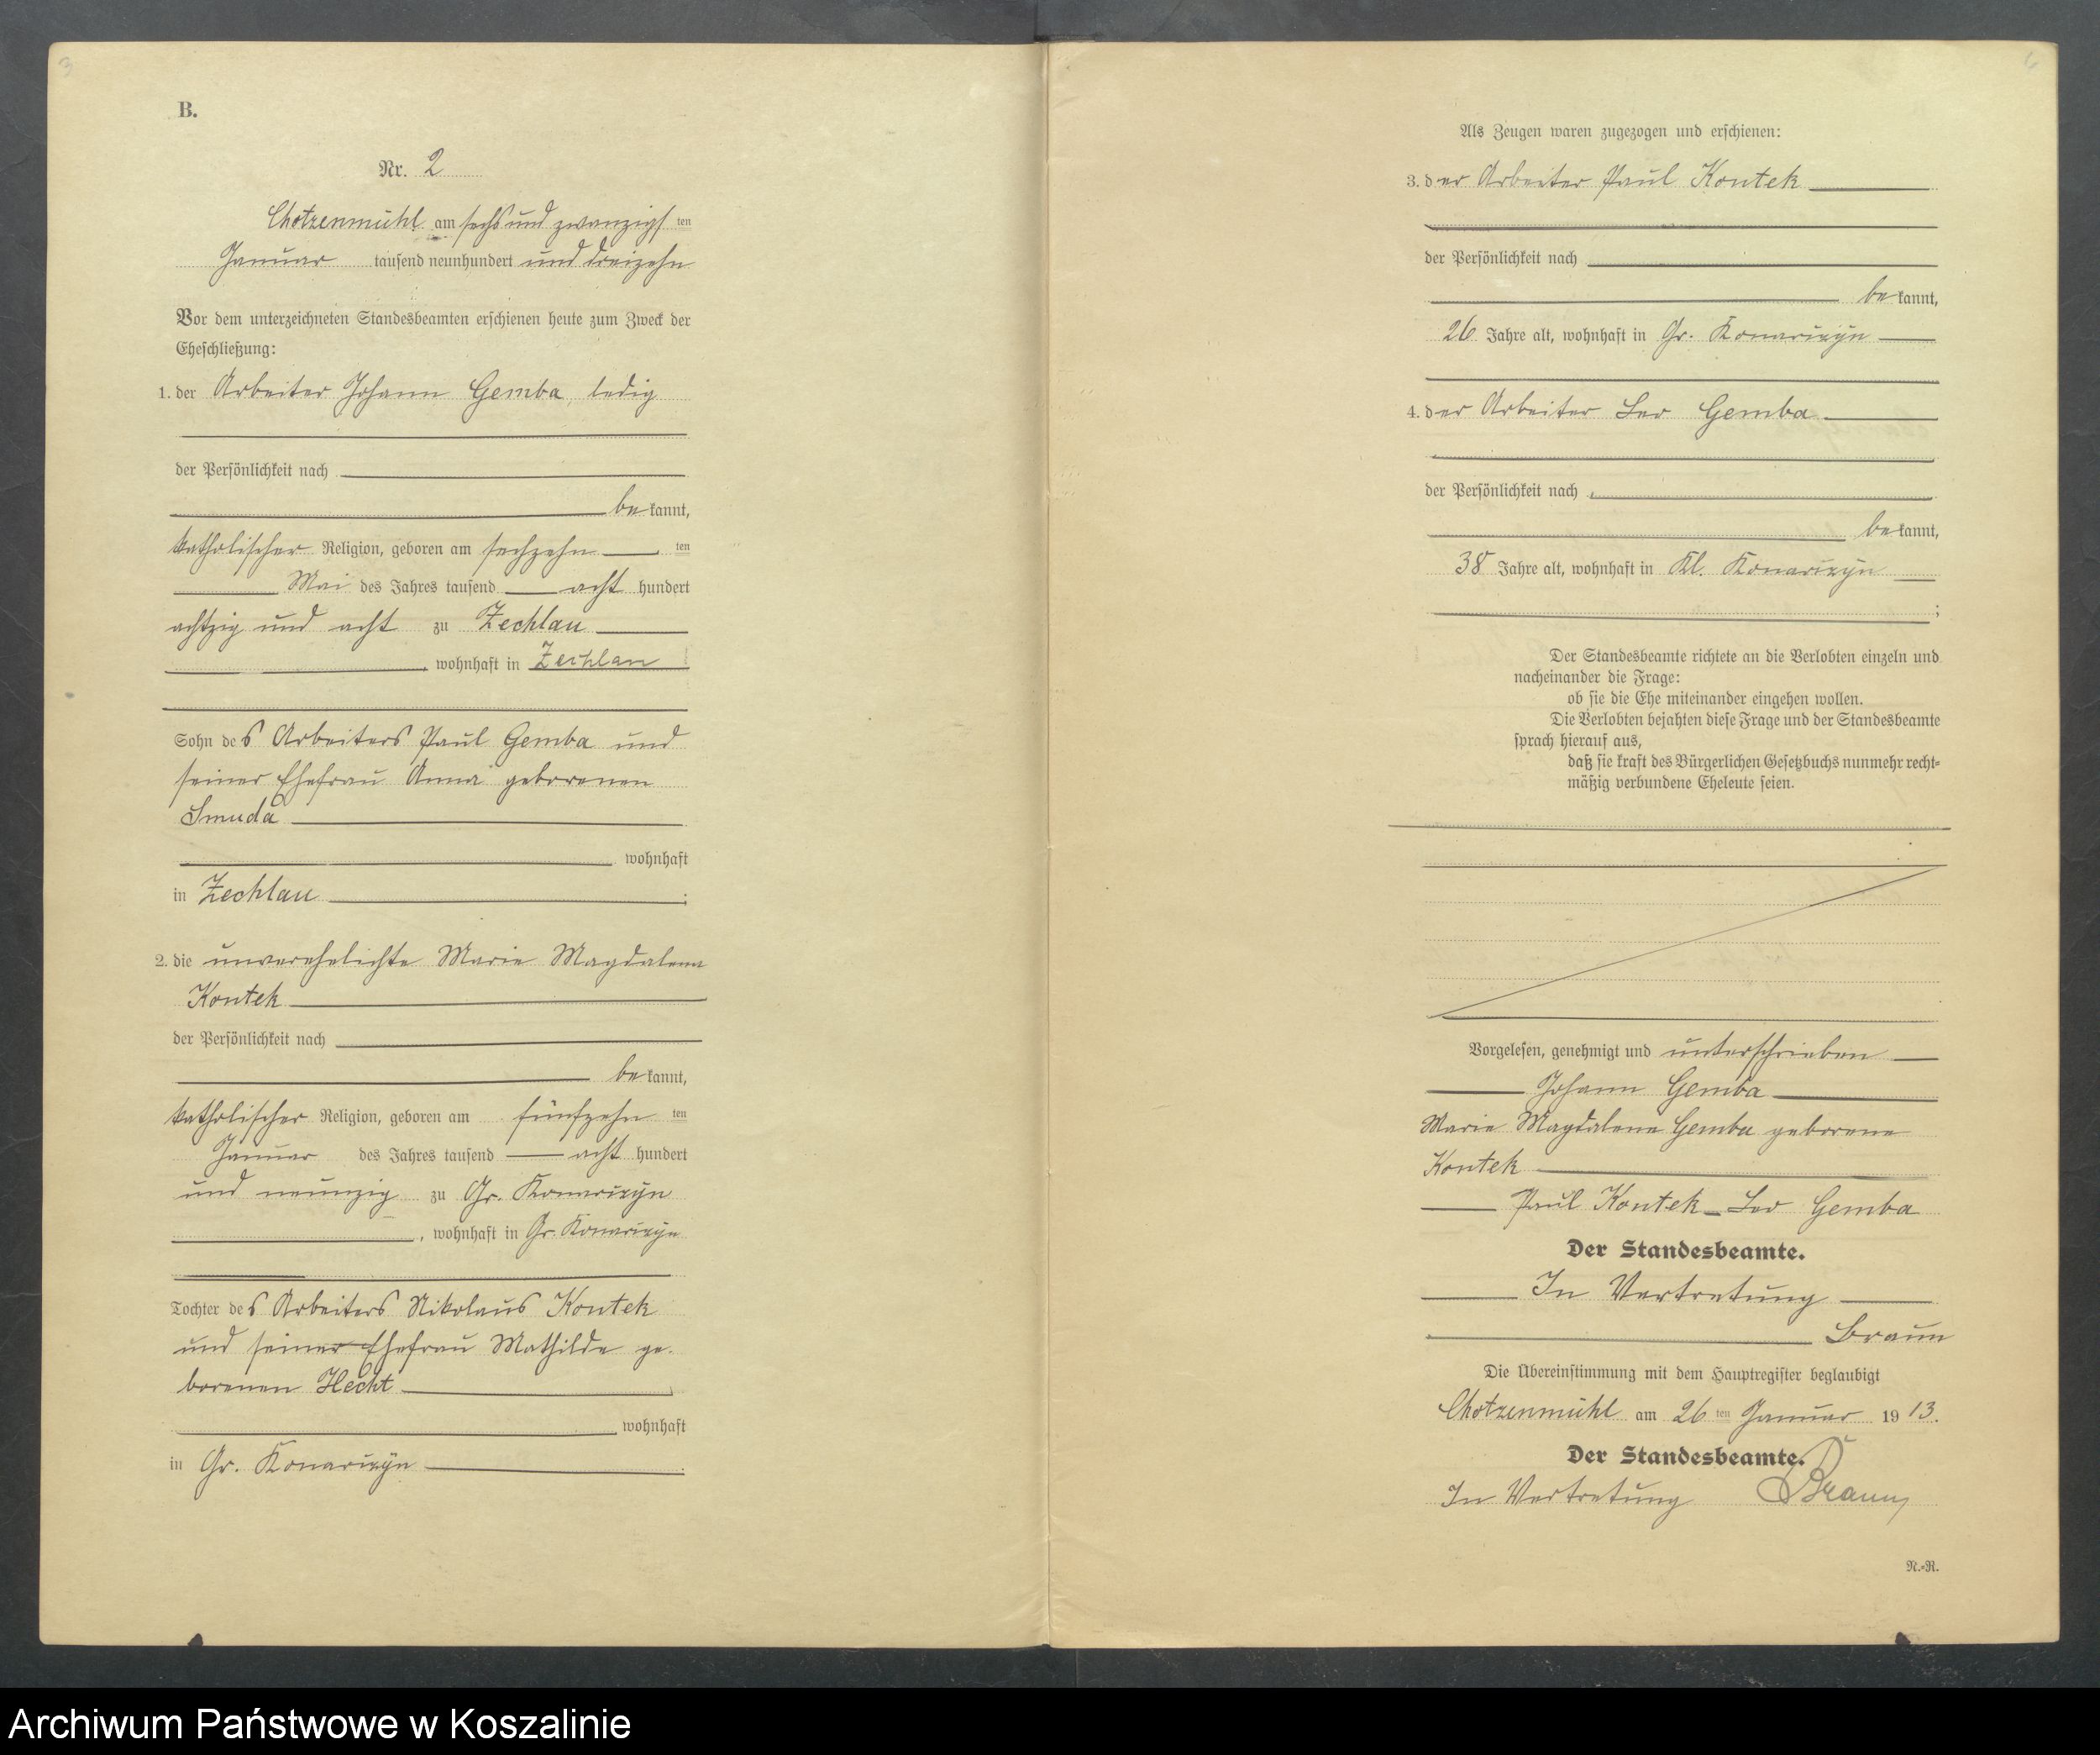 3
B.
Nr. 2
Chotzenmühl am sechsundzwanzigsten
Januar tausend neunhundert und dreizehn
Vor dem unterzeichneten Standesbeamten erschienen heute zum Zweck der
Eheschließung:
1. der Arbeiter Johann Gemba, ledig
der Persönlichkeit nach
bekannt,
katholischer Religion, geboren am sechzehn ten
Mai des Jahres tausend acht hundert
achtzig und acht zu Zechlau
, wohnhaft in Zechlau
Sohn des Arbeiters Paul Gemba und
seiner Ehefrau Anna geborenen
Smuda
wohnhaft
in Zechlau ;
2. die unverehelichte Marie Magdalena
Kontek
der Persönlichkeit nach
bekannt,
katholischer Religion, geboren am fünfzehn ten
Januar des Jahres tausend acht hundert
und neunzig zu Gr. Konarczyn
, wohnhaft in Gr. Konarczyn
Tochter des Arbeiters Nikolaus Kontek
und seiner Ehefrau Mathilde ge-
borenen Hecht
wohnhaft
in Gr. Konarczyn .
6
Als Zeugen waren zugezogen und erschienen:
3. der Arbeiter Paul Kontek
der Persönlichkeit nach
bekannt,
26 Jahre alt, wohnhaft in Gr. Konarczyn
4. der Arbeiter Leo Gemba
der Persönlichkeit nach
bekannt,
38 Jahre alt, wohnhaft in Kl. Konarczyn
;
Der Standesbeamte richtete an die Verlobten einzeln und
nacheinander die Frage:
ob sie die Ehe miteinander eingehen wollen.
Die Verlobten bejahten diese Frage und der Standesbeamte
sprach hierauf aus,
daß sie kraft des Bürgerlichen Gesetzbuchs nunmehr recht-
mäßig verbundene Eheleute seien.
Vorgelesen, genehmigt und unterschrieben
Johann Gemba
Marie Magdalena Gemba geborene
Kontek
Paul Kontek – Leo Gemba
Der Standesbeamte.
In Vertretung
Braun
Die Übereinstimmung mit dem Hauptregister beglaubigt
Chotzenmühl am 26 ten Januar 1913.
Der Standesbeamte.
In Vertretung Braun
N.-R.
Archiwum Państwowe w Koszalinie